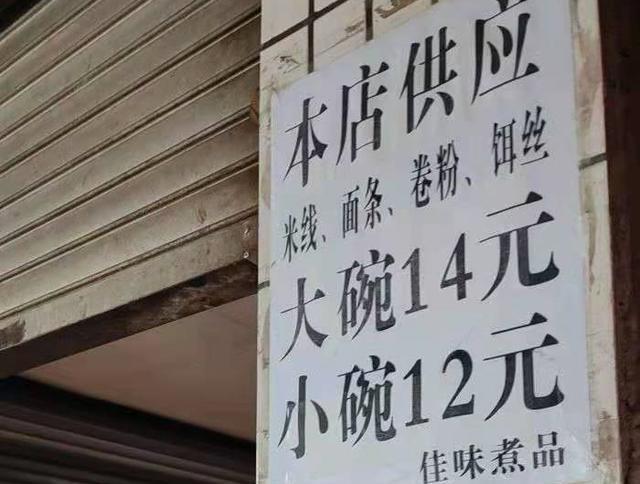 本店供应
米线、面条、卷粉、饵丝
大碗14元
小碗12元
佳味煮品